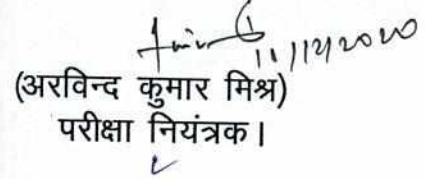 11/12/2020
(अरविन्द कुमार मिश्र)
परीक्षा नियंत्रक।